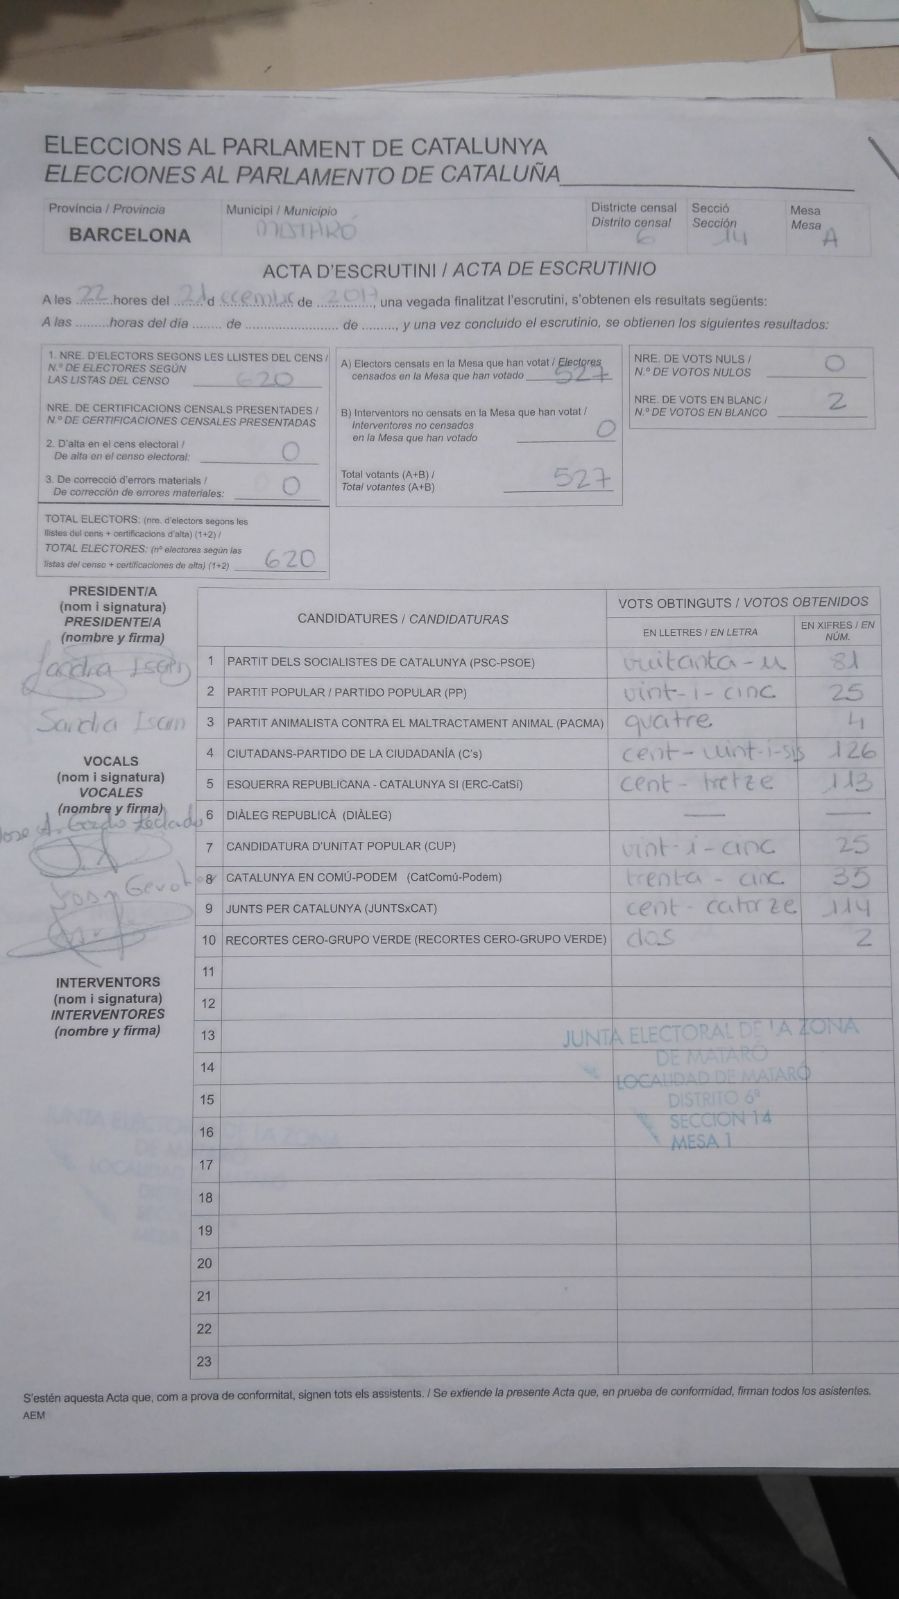 ELECCIONS AL PARLAMENT DE CATALUNYA
ELECCIONES AL PARLAMENTO DE CATALUÑA
Província / Provincia
BARCELONA
Municipi / Municipio
MATARÓ
Districte censal
Distrito censal
6
Secció
Sección
14
Mesa
Mesa
A
ACTA D'ESCRUTINI / ACTA DE ESCRUTINIO
A les 22 hores del 21 d ecembre de 2017, una vegada finalitzat l'escrutini, s'obtenen els resultats següents:
A las ......... horas del día ........ de ...................... de ........., y una vez concluido el escrutinio, se obtienen los siguientes resultados:
1. NRE. D'ELECTORS SEGONS LES LLISTES DEL CENS /
N.º DE ELECTORES SEGÚN
LAS LISTAS DEL CENSO 620
NRE. DE CERTIFICACIONS CENSALS PRESENTADES /
N.º DE CERTIFICACIONES CENSALES PRESENTADAS
2. D'alta en el cens electoral /
De alta en el censo electoral: 0
3. De correcció d'errors materials /
De corrección de errores materiales: 0
TOTAL ELECTORS: (nre. d'electors segons les
llistes del cens + certificacions d'alta) (1+2) /
TOTAL ELECTORES: (nº electores según las
listas del censo + certificaciones de alta) (1+2) 620
A) Electors censats en la Mesa que han votat / Electores
censados en la Mesa que han votado 527
B) Interventors no censats en la Mesa que han votat /
Interventores no censados
en la Mesa que han votado 0
Total votants (A+B) /
Total votantes (A+B) 527
NRE. DE VOTS NULS /
N.º DE VOTOS NULOS 0
NRE. DE VOTS EN BLANC /
N.º DE VOTOS EN BLANCO 2
PRESIDENT/A
(nom i signatura)
PRESIDENTE/A
(nombre y firma)
Sandra
Sandra
VOCALS
(nom i signatura)
VOCALES
(nombre y firma)
Jose A.
INTERVENTORS
(nom i signatura)
INTERVENTORES
(nombre y firma)
CANDIDATURES / CANDIDATURAS
VOTS OBTINGUTS / VOTOS OBTENIDOS
EN LLETRES / EN LETRA
EN XIFRES / EN NÚM.
1 PARTIT DELS SOCIALISTES DE CATALUNYA (PSC-PSOE) vuitanta-u 81
2 PARTIT POPULAR / PARTIDO POPULAR (PP) vint-i-cinc 25
3 PARTIT ANIMALISTA CONTRA EL MALTRACTAMENT ANIMAL (PACMA) quatre 4
4 CIUTADANS-PARTIDO DE LA CIUDADANÍA (C's) cent-vint-i-sis 126
5 ESQUERRA REPUBLICANA - CATALUNYA SI (ERC-CatSí) cent-tretze 113
6 DIÀLEG REPUBLICÀ (DIÀLEG) — —
7 CANDIDATURA D'UNITAT POPULAR (CUP) vint-i-cinc 25
8 CATALUNYA EN COMÚ-PODEM (CatComú-Podem) trenta-cinc 35
9 JUNTS PER CATALUNYA (JUNTSxCAT) cent-catorze 114
10 RECORTES CERO-GRUPO VERDE (RECORTES CERO-GRUPO VERDE) dos 2
11
12
13
14
15
16
17
18
19
20
21
22
23
JUNTA ELECTORAL DE LA ZONA
DE MATARÓ
LOCALIDAD DE MATARÓ
DISTRITO 6º
SECCION 14
MESA 1
S'estén aquesta Acta que, com a prova de conformitat, signen tots els assistents. / Se extiende la presente Acta que, en prueba de conformidad, firman todos los asistentes.
AEM